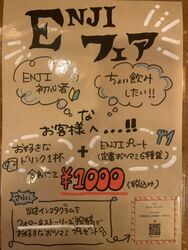 ENJI
フェア
ENJI
初心者
ちょい飲み
したい!!
な
お客様へ…!!
お好きな
ドリンク1杯
+
ENJIプレート
(定番おツマミ6種盛)
合わせて
¥1000
(税込み)
さらに
当店インスタグラムを
フォロー&ストーリーズ投稿で
お好きなおツマミプレゼント